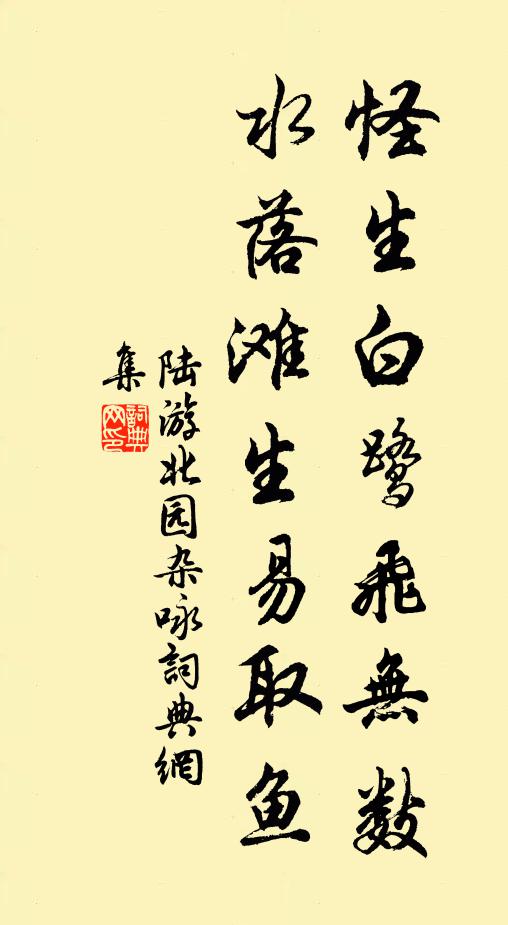 怪生白鹭飛無数
水落滩生易取鱼
陆游北园杂咏詞典網
集
詞典
网印